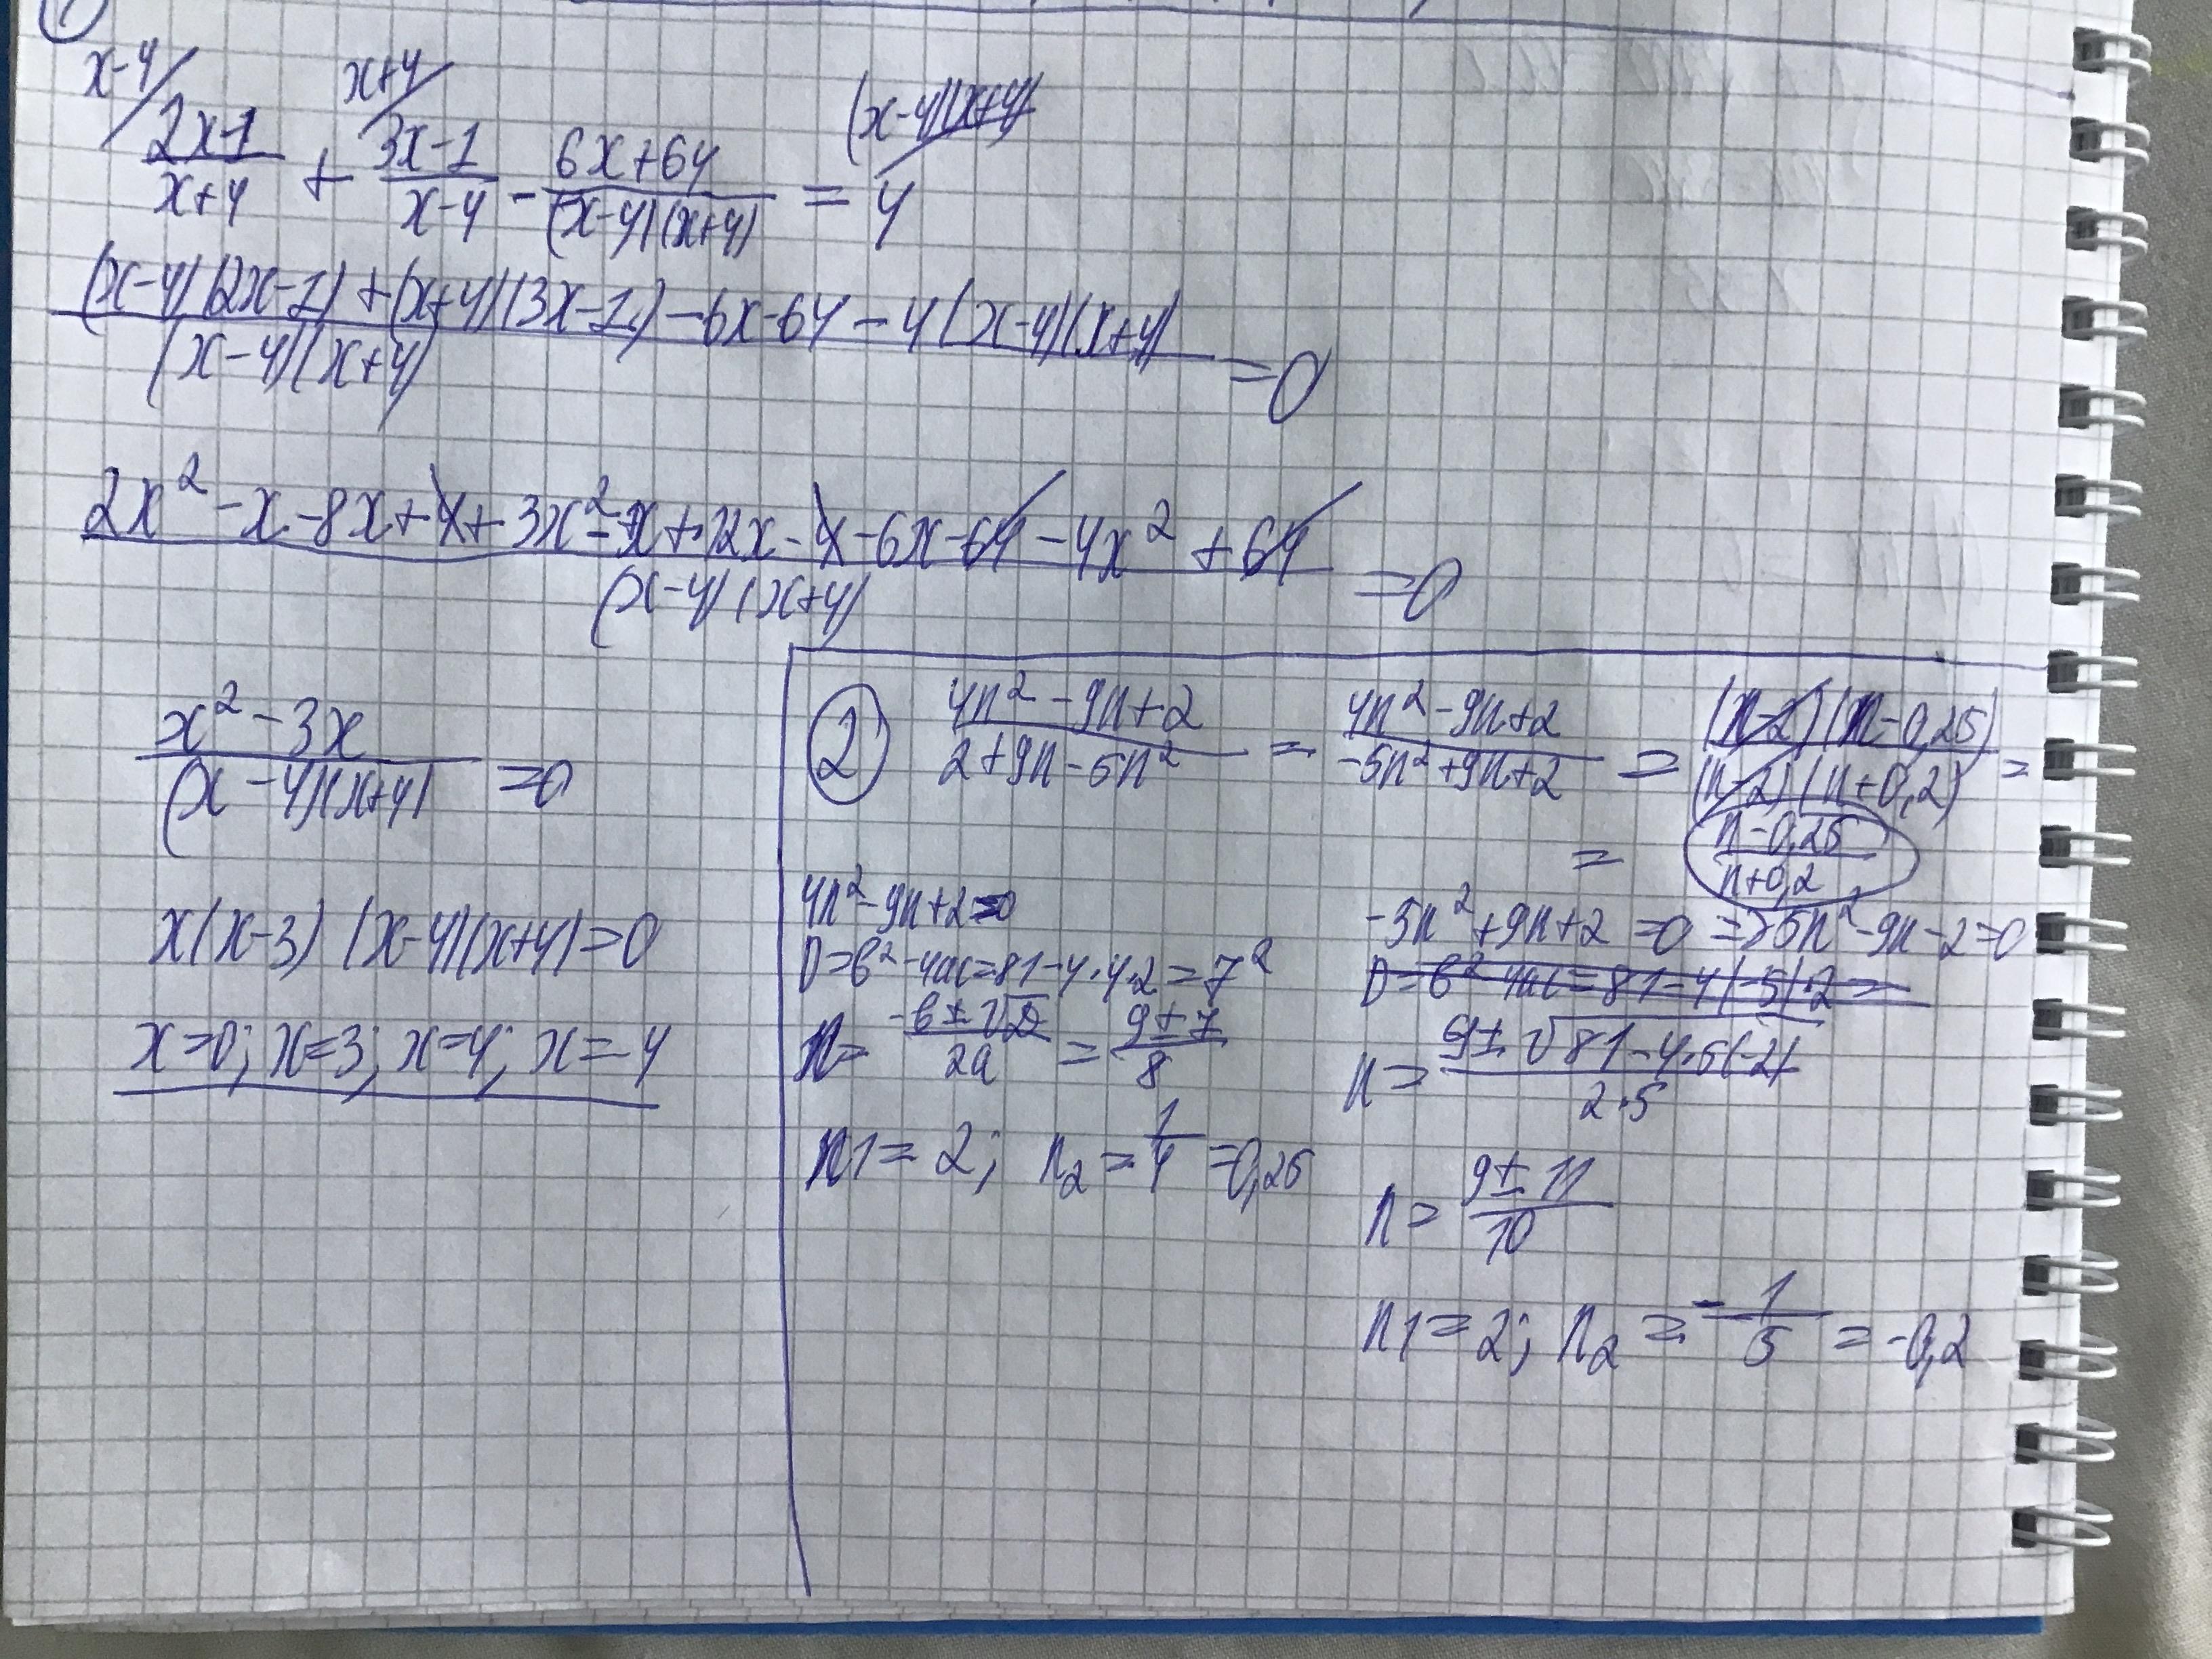 x-4 x+4 (x-4)(x+4)
2x-1/x+4 + 3x-1/x-4 - 6x+64/(x-4)(x+4) = 4
(x-4)(2x-1)+(x+4)(3x-1)-6x-64-4(x-4)(x+4)/(x-4)(x+4) =0
2x²-x-8x+4+3x²-x+12x-4-6x-64-4x²+64/(x-4)(x+4) =0
x²-3x/(x-4)(x+4) =0
x(x-3) (x-4)(x+4)=0
x=0; x=3; x=4; x=-4
2 4n²-9n+2/2+9n-5n² = 4n²-9n+2/-5n²+9n+2 = (n-2)(n-0,25)/(n-2)(n+0,2) =
= n-0,25/n+0,2
4n²-9n+2=0
D=b²-4ac=81-4·4·2=7²
n= -b±√D/2a = 9±7/8
n1=2; n2=1/4=0,25
-5n²+9n+2=0 =>5n²-9n-2=0
D=b²-4ac=81-4(-5)·2=
n= 9±√81-4·5(-2)/2·5
n= 9±11/10
n1=2; n2=-1/5=-0,2